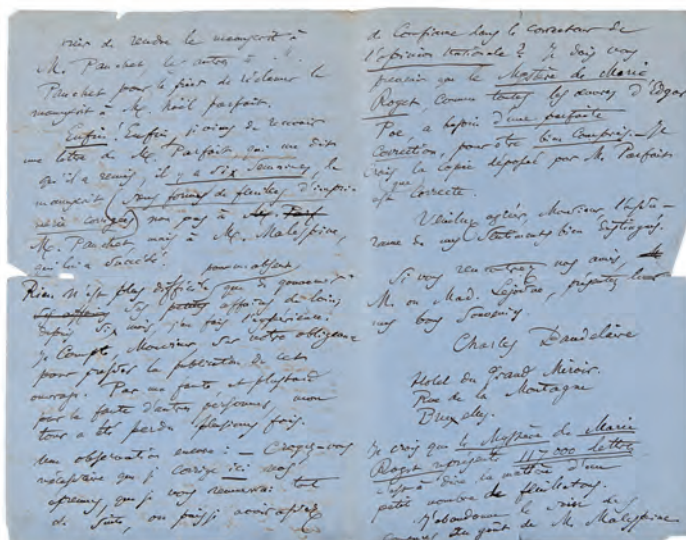 prier de rendre le manuscrit à
M. Pauchet, les autres à
Pauchet pour le prier de réclamer le
manuscrit à M. Noël Parfait.
Enfin! Enfin, je viens de recevoir
une lettre de M. Parfait qui me dit
qu'il a remis, il y a six semaines, le
manuscrit (sous forme de feuilles d'impri-
merie corrigées) non pas à
M. Pauchet, mais à M. Malespine,
qui lui a succédé.
Rien n'est plus difficile pour un absent que de gouverner
ses petites affaires de loin;
depuis six mois, j'en fais l'expérience.
Je compte, Monsieur sur votre obligeance
pour presser la publication de cet
ouvrage. Par ma faute et plus tard
par la faute d'autres personnes, mon
tour a été perdu plusieurs fois.
Une observation encore: — Croyez-vous
nécessaire que je corrige ici mes
épreuves, que je vous renverrai tout
de suite, ou puis-je avoir assez
de confiance dans le correcteur de
l'opinion nationale? Je dois vous
prévenir que le Mystère de Marie
Roget, comme toutes les œuvres d'Edgar
Poe, a besoin d'une parfaite
correction, pour être bien compris. — Je
crois que la copie déposée par M. Parfait
est correcte.
Veuillez agréer, Monsieur, l'assu-
rance de mes sentiments bien distingués.
Si vous rencontrez nos amis,
M. ou Mad. Lejosne, présentez leur
mes bons souvenirs.
Charles Baudelaire
Hotel du Grand Miroir.
Rue de la Montagne
Bruxelles.
Je crois que le Mystère de Marie
Roget représente 117 000 lettres
c'est à dire la matière d'un
petit nombre de feuilletons.
J'abandonne le soin des
coupures au goût de M. Malespine